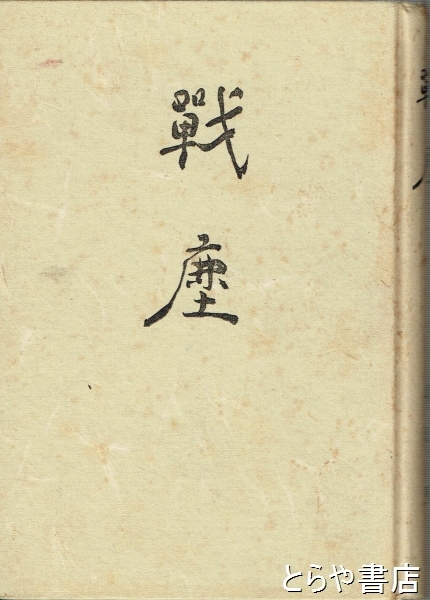 戰
塵
とらや書店